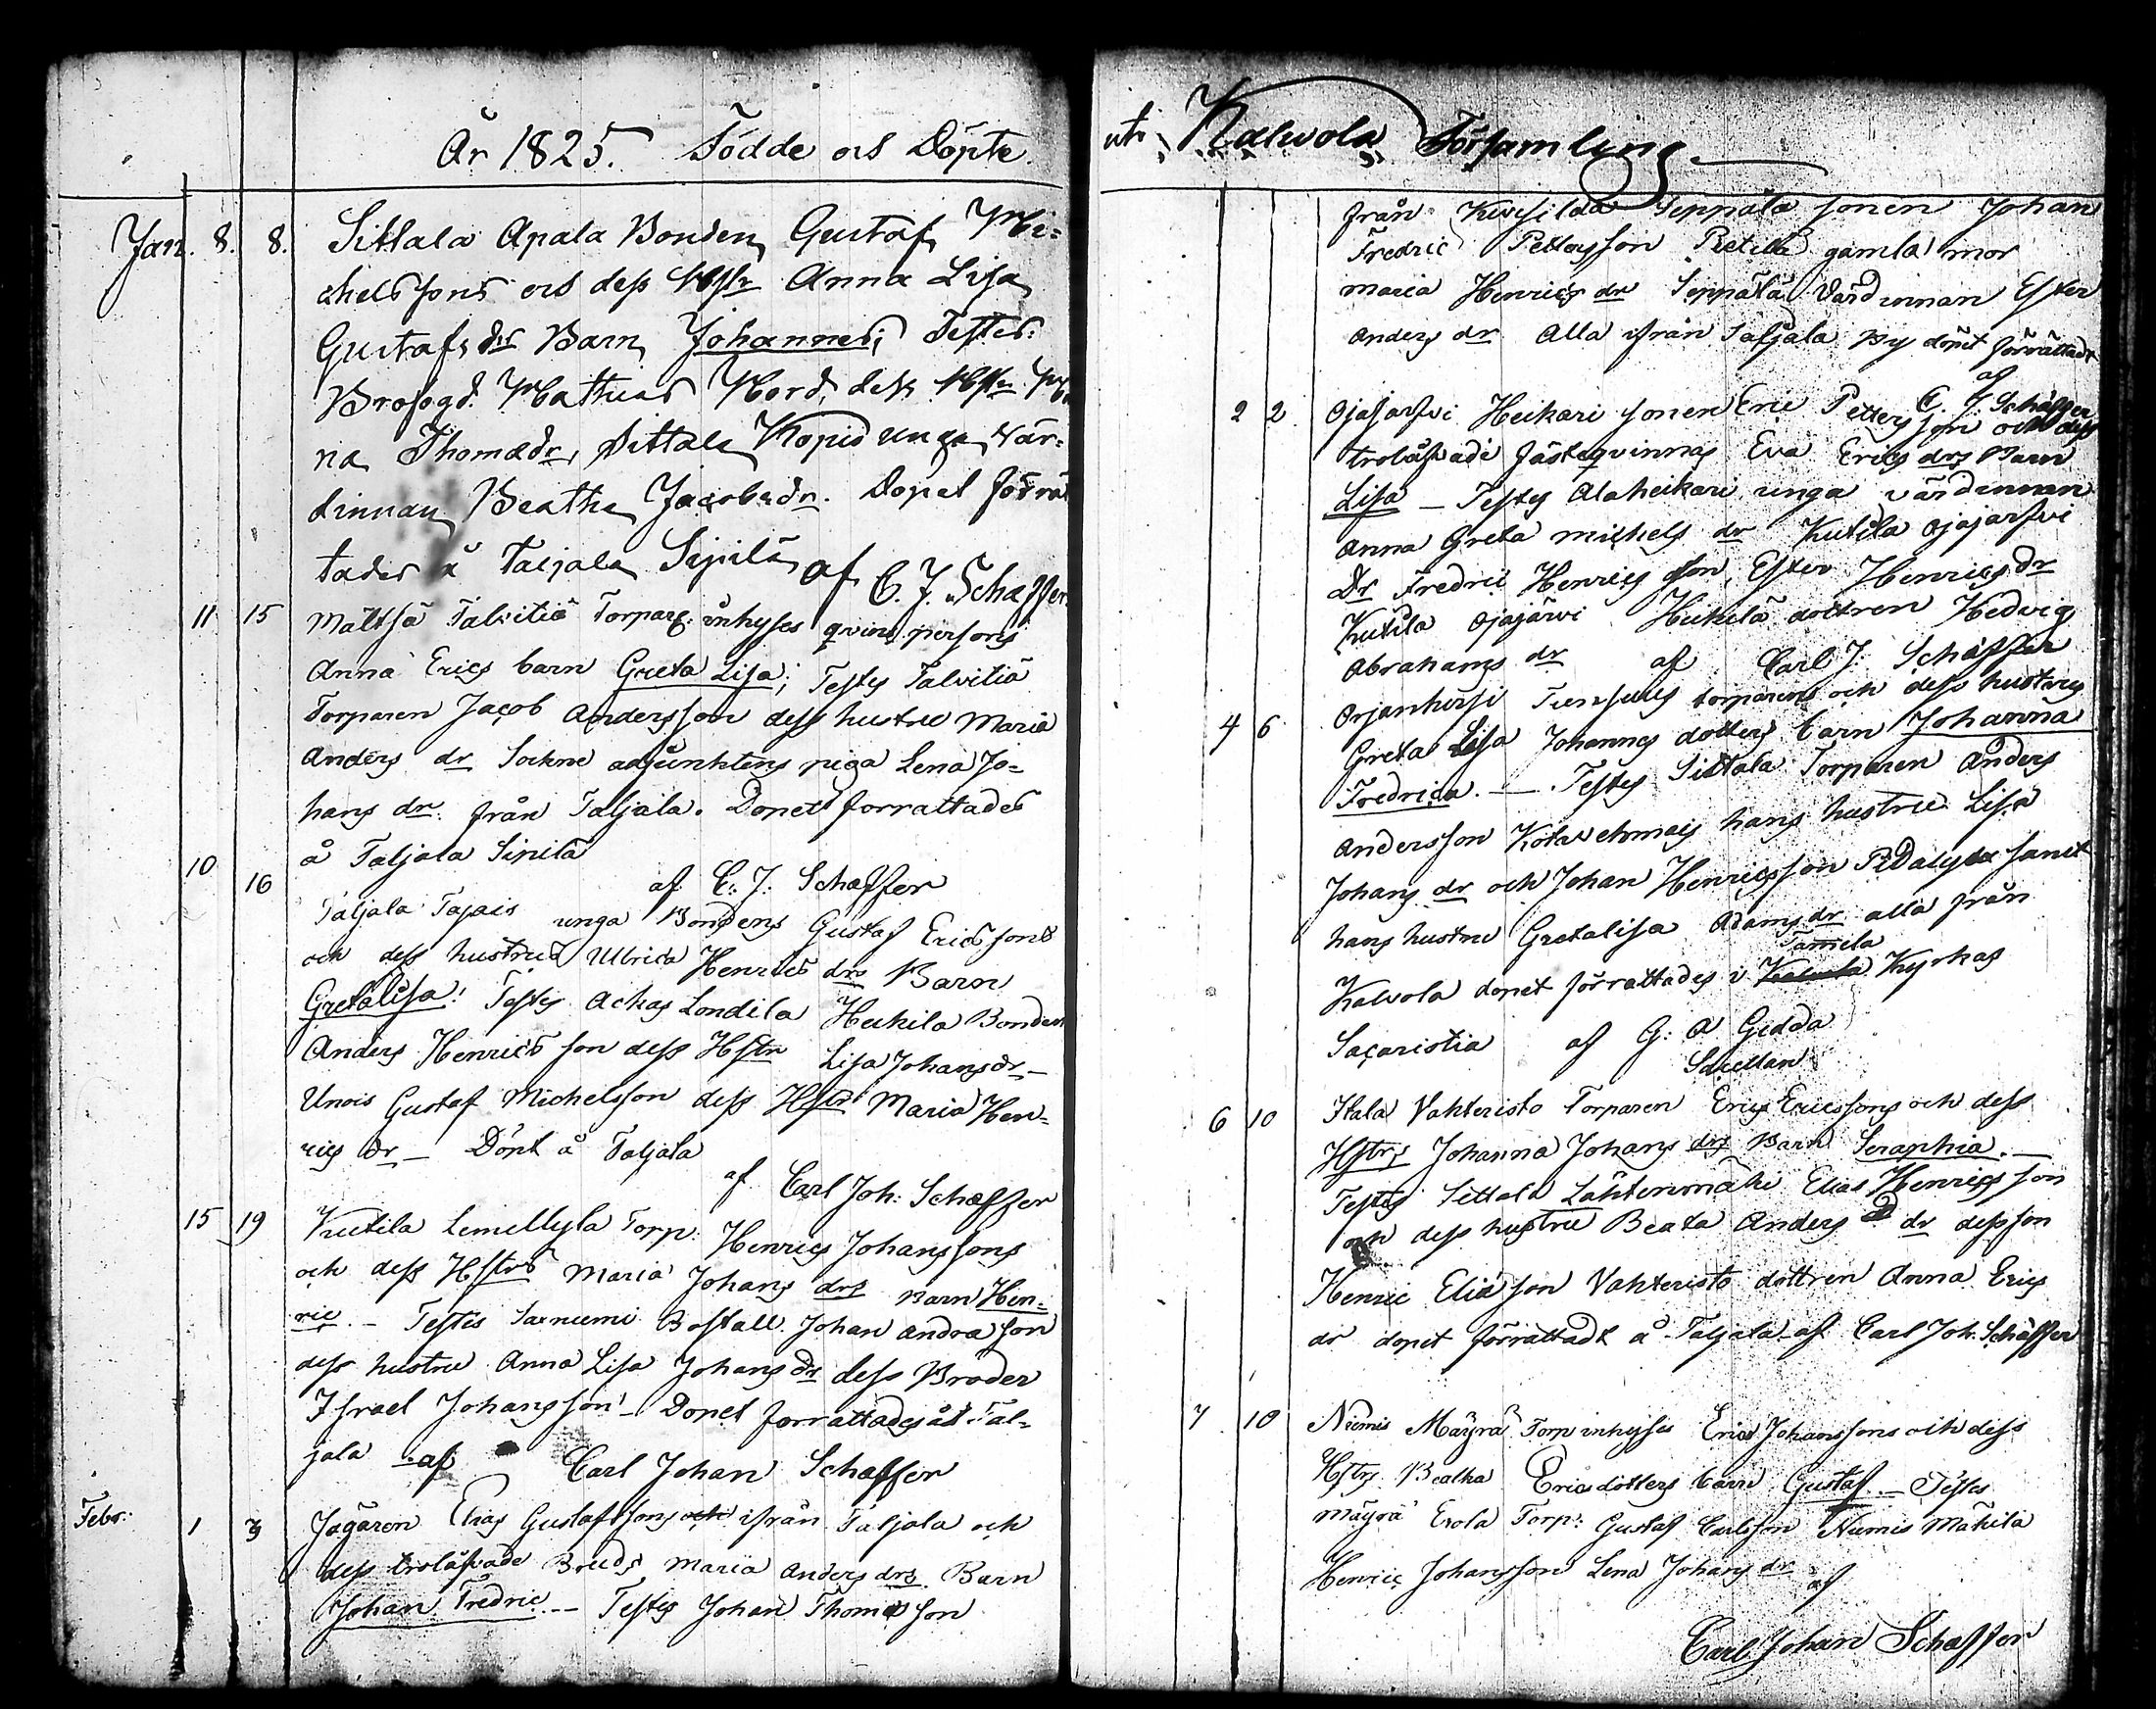 År 1825. Födde och Döpte
Jan. 8. 8. Sittala Apala Bonden Gustaf Mi=
chelssons och dess Hstr Anna Lisa
Gustafsdrs Barn Johannes; Testes:
Brofogd. Mathias Nord, dess Hstr
na Thomædr, Sittala Kopis unga Vär=
dinnan Beatha Jacobsdr. Dopet förrät
tades å Taljala Sipilä af C. J. Schæffer
11 15 Maltsä Talvitiä Torpare inhyses qvins persons
Anna Erics barn Greta Lisa; Testes Talvitiä
Torparen Jacob Andersson dess hustru Maria
Anders dr Sockne adjunktens piga Lena Jo=
hans dr från Taljala. Dopet forrattades
å Taljala Sipilä
af C. J. Schæffer
10 16 Taljala Tapais unga Bondens Gustaf Ericssons
och dess hustrus Ulrica Henrics drs Barn
Gretalisa! Testes Ackas Londila Heikila Bonden
Anders Henrics son dess Hstr Lisa Johansdr –
Unois Gustaf Michelsson dess Hstr Maria Hen=
rics dr – Döpt å Taljala
af Carl Joh: Schæffer
15 19 Kutila Lemillyla Torp: Henrics Johanssons
och dess Hstrs Maria Johans drs Barn Hen=
ric. – Testis Sarniemi Bostall. Johan Andra son
dess hustru Anna Lisa Johans dr dess Broder
Israel Johansson – Dopet forrattades åt Tal=
jala af Carl Johan Schæffer
Febr: 1 3 Jägaren Elias Gustafssons och ifrån Taljala och
dess trolåfvade Bruds Maria Anders drs. Barn
Johan Fredric – Testes Johan Thomas son
uti Kalvola Församling
från Kursilda Seppälä sonen Johan
Fredric Pettersson Pietilä gamla mor
maria Henrics dr Seppälä Värdinnan Ester
Anders dr Alla ifrån Taljala By döpet förrättadt
af C. J. Schæffer
2 2 Ojajärfvi Heikari sonen Eric Pettersson och dess
trolåfvade fästeqvinnas Eva Erics drs Barn
Lisa – Testes Alaheikari unga värdinnan
Anna Greta michels dr Kutila Ojajarfvi
Dr Fredric Henrics son, Ester Henrics dr
Kutila Ojajärvi Heikilä dottren Hedvig
Abrahams dr af Carl J: Schæffer
4 6 Orjanhirsi torparens och dess hustrus
Greta Lisa Johannes dotters barn Johanna
Fredrica. – Testes Sittala Torparen Anders
Andersson hans hustru Lisa
Johans dr och Johan Henricsson
hans hustru Gretalisa Adams dr alla från
Tamela
Kalvola dopet förrattades i Kalvola Kyrkas
Sacaristia af G: A Gedda
6 10 Itala Vahteristo Torparen Erics Ericssons och dess
Hstrs Johanna Johans drs Barn Seraphia. –
Testes Sittala Lähtenmäki Elias Henrics son
och dess hustru Beata Anders dr dess son
Henric Elia son Vahteristo dottren Anna Erics
dr dopet förrättadt å Taljala af Carl Joh: Schæffer
7 10 Niemis Mäyrä Torp inhyses Erics Johanssons och dess
Hstrs Beatha Ericsdotters barn Gustaf. – Testes
mäyrä Erola Torp: Gustaf Carlsson Niemis Mäkila
Henric Johansson Lena Johans dr af
Carl Johan Schæffer